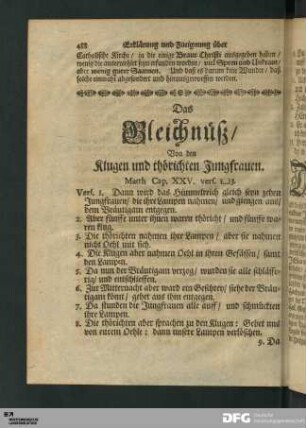 488 Erklärung und Zueignung über
Catholische Kirche / in die einige Braut Christi ausgegeben haben /
wenn die untersuchet zur erfunden worden / viel Spreu und Unkraut /
aber wenig guter Saamen. Und daß es darum kein Wunder / daß
solche einmahl abgesondert und herausgeworffen werden.
Das
Gleichnüß /
Von den
Klugen und thörichten Jungfrauen.
Matth Cap. XXV. vers. 1..13
Vers. 1. Dann wird das Himmelreich gleich seyn zehen
Jungfrauen / die ihre Lampen nahmen / und giengen aus /
dem Bräutigam entgegen.
2. Aber fünffe unter ihnen waren thöricht / und fünffe waren
klug.
3. Die thörichten nahmen ihre Lampen / aber sie nahmen
nicht Oehl mit sich.
4. Die Klugen aber nahmen Oehl in ihren Gefässen / samt
den Lampen.
5. Da nun der Bräutigam verzog / wurden sie alle schläffe-
rig / und entschlieffen.
6. Zur Mitternacht aber ward ein Geschrey / siehe der Bräu-
tigam kömt / gehet aus ihm entgegen.
7. Da stunden die Jungfrauen alle auff / und schmückten
ihre Lampen.
8. Die thörichten aber sprachen zu den Klugen: Gebet uns
von eurem Oehle: dann unsere Lampen verlöschen.
9. Da
DFG